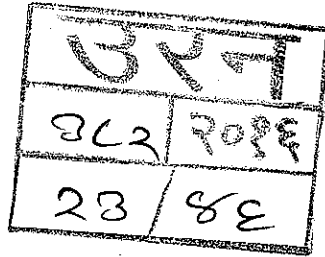 उरन
७८२ २०१६
२७ / ४६